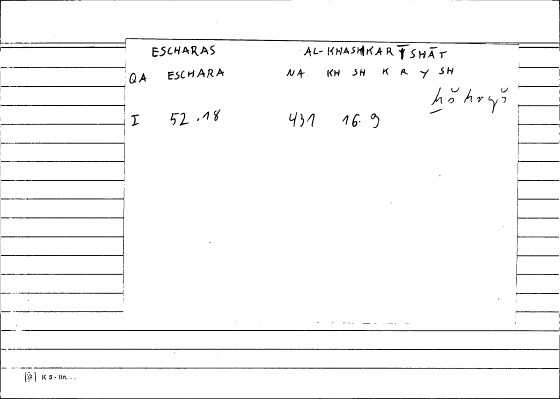 ESCHARAS AL-KHASHKARĪSHĀT
QA ESCHARA NA KH SH K R Y SH
ḫškryš
I 52.18 431 16.9
K 5 - lin...